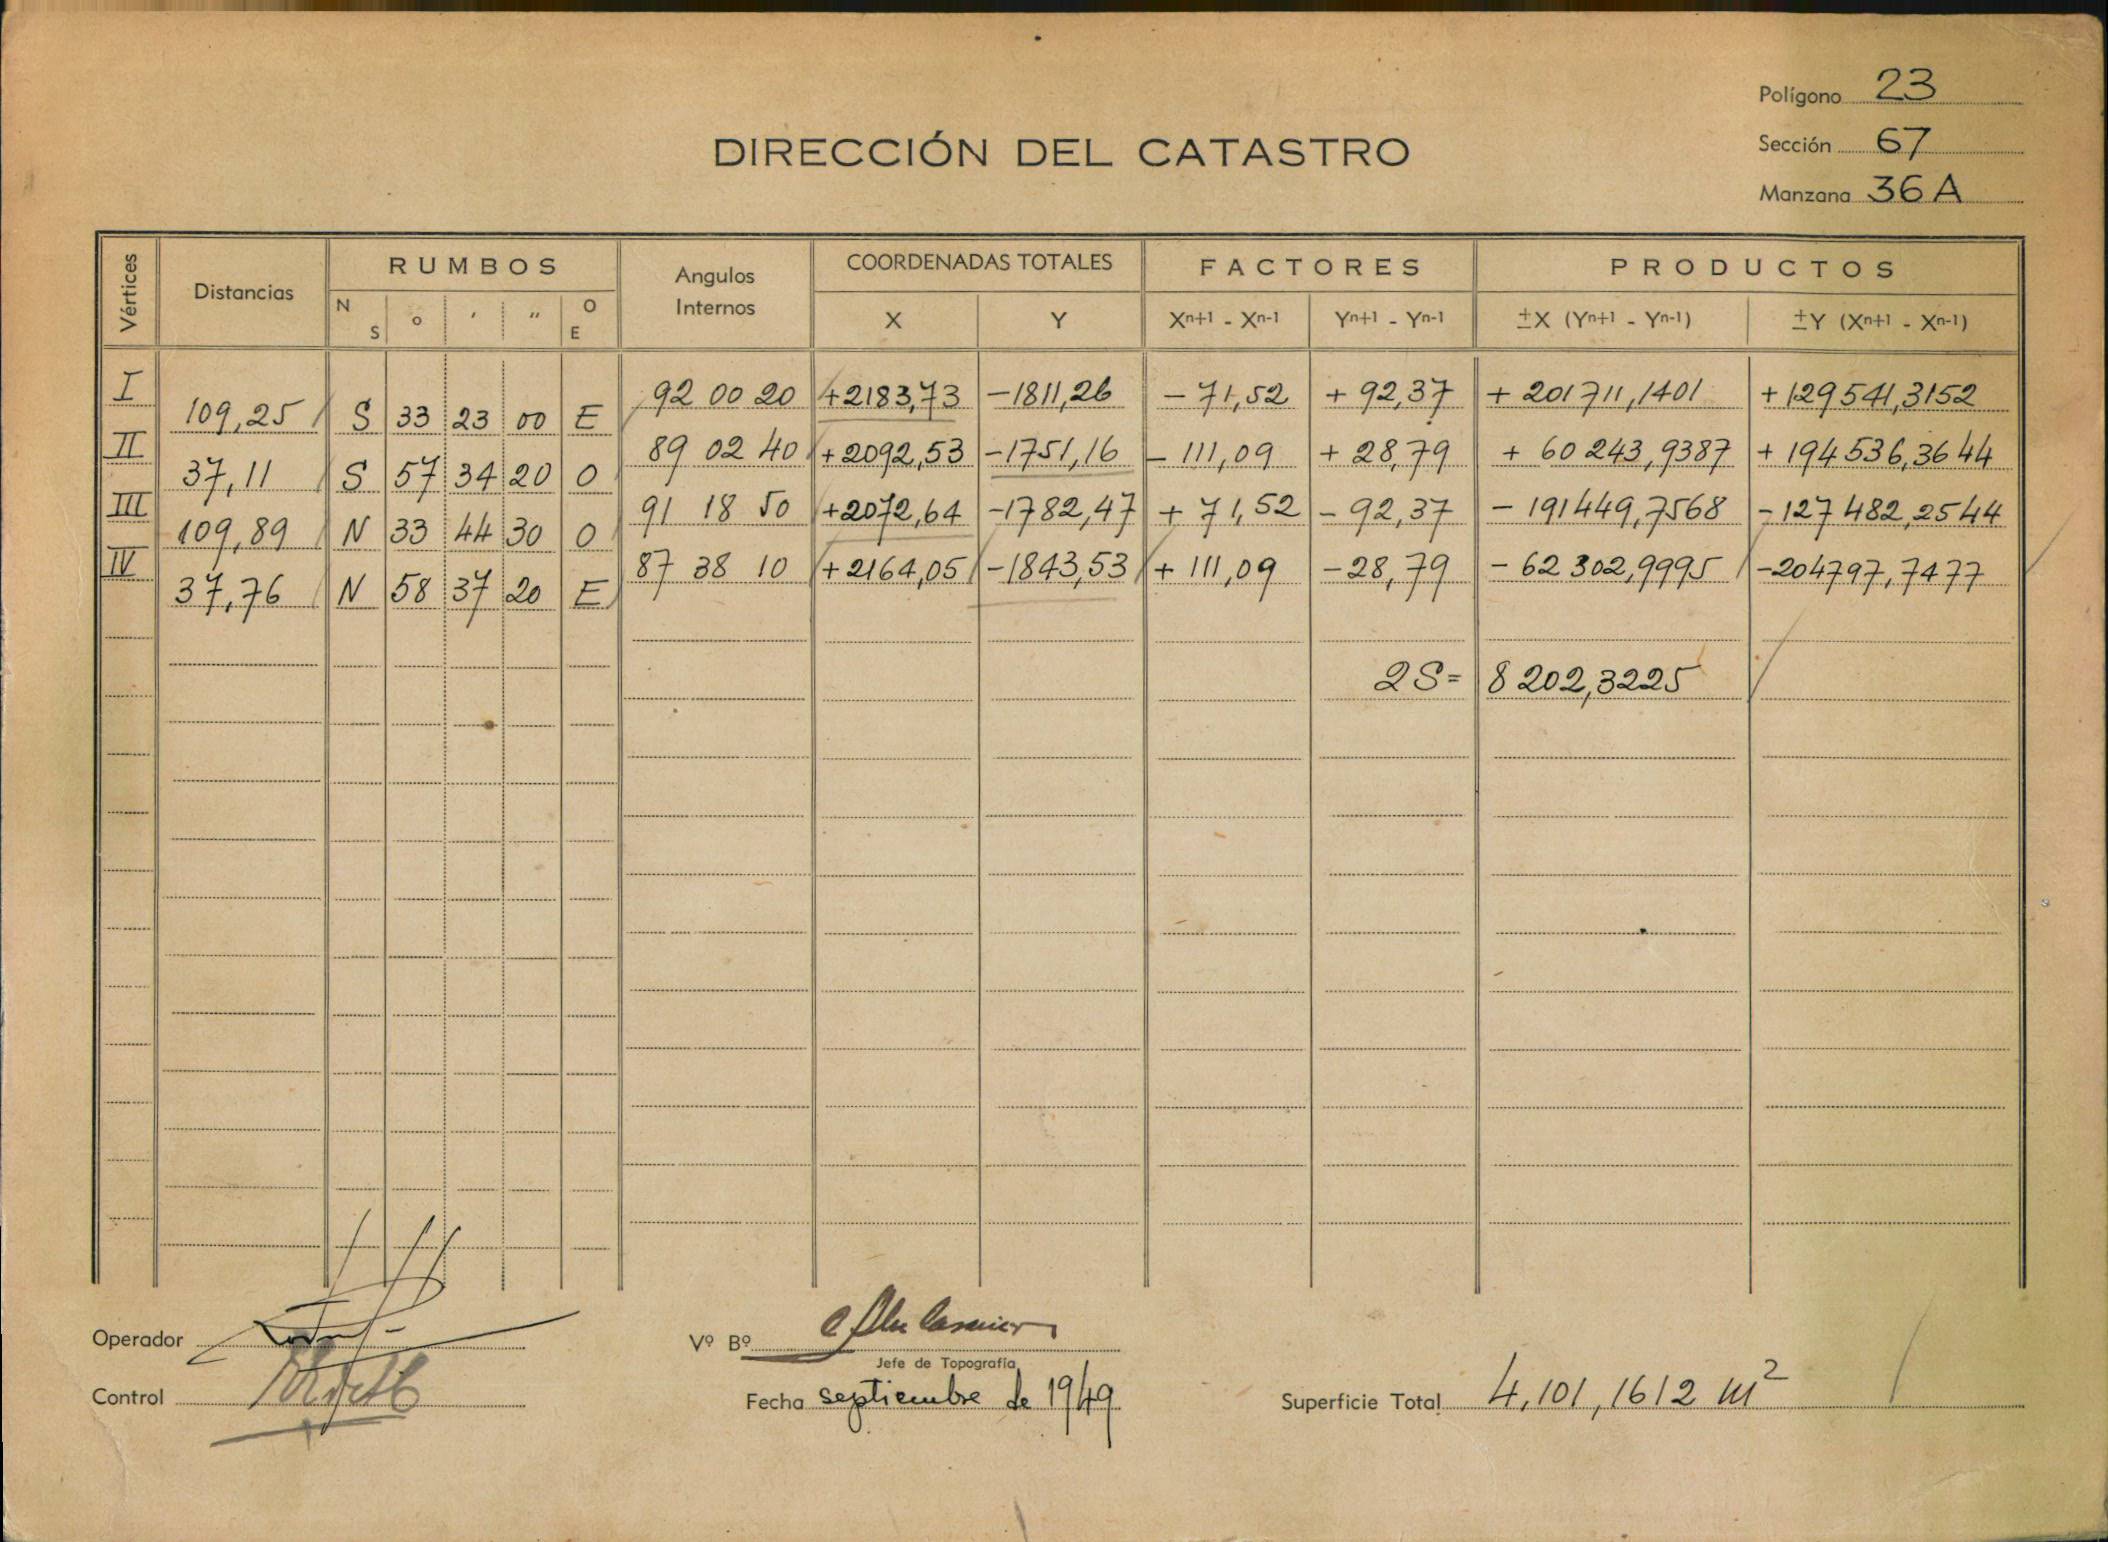 Polígono 23
DIRECCIÓN DEL CATASTRO
Sección 67
Manzana 36 A
Vértices Distancias RUMBOS N S o ′ ″ O E Angulos Internos COORDENADAS TOTALES X Y FACTORES Xn+1 - Xn-1 Yn+1 - Yn-1 PRODUCTOS ±X (Yn+1 - Yn-1) ±Y (Xn+1 - Xn-1)
I 92 00 20 +2183,73 -1811,26 - 71,52 + 92,37 + 201711,1401 + 129541,3152
109,25 S 33 23 00 E
II 89 02 40 +2092,53 -1751,16 - 111,09 + 28,79 + 60 243,9387 + 194 536,3644
37,11 S 57 34 20 O
III 91 18 50 +2072,64 -1782,47 + 71,52 - 92,37 - 191449,7568 - 127 482,2544
109,89 N 33 44 30 O
IV 87 38 10 +2164,05 -1843,53 + 111,09 -28,79 - 62 302,9995 -204797,7477
37,76 N 58 37 20 E
2S= 8 202,3225
Operador
Vº Bº
Jefe de Topografía
Control
Fecha septiembre de 1949
Superficie Total 4,101,1612 m²